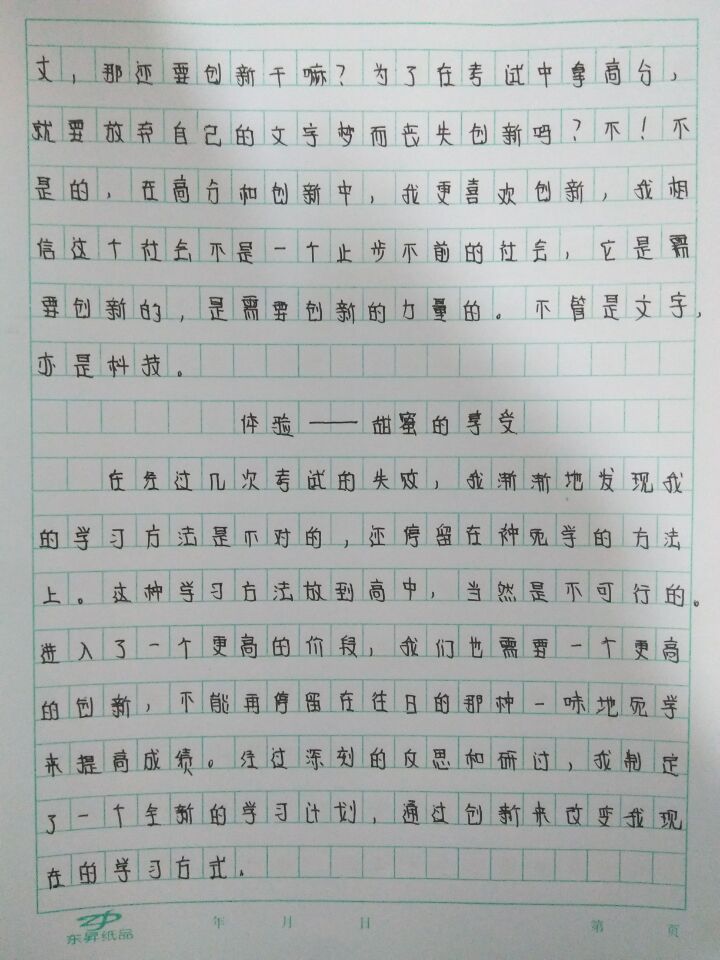 文，那还要创新干嘛？为了在考试中拿高分，
就要放弃自己的文字梦而丧失创新吗？不！不
是的，在高分和创新中，我更喜欢创新，我相
信这个社会不是一个止步不前的社会，它是需
要创新的，是需要创新的力量的。不管是文字，
亦是科技。
体验——甜蜜的享受
在经过几次考试的失败，我渐渐地发现我
的学习方法是不对的，还停留在种死学的方法
上。这种学习方法放到高中，当然是不可行的。
进入了一个更高的价段，我们也需要一个更高
的创新，不能再停留在往日的那种一味地死学
来提高成绩。经过深刻的反思和研讨，我制定
了一个全新的学习计划，通过创新来改变我现
在的学习方式．
东昇纸品 年 月 日 第 页